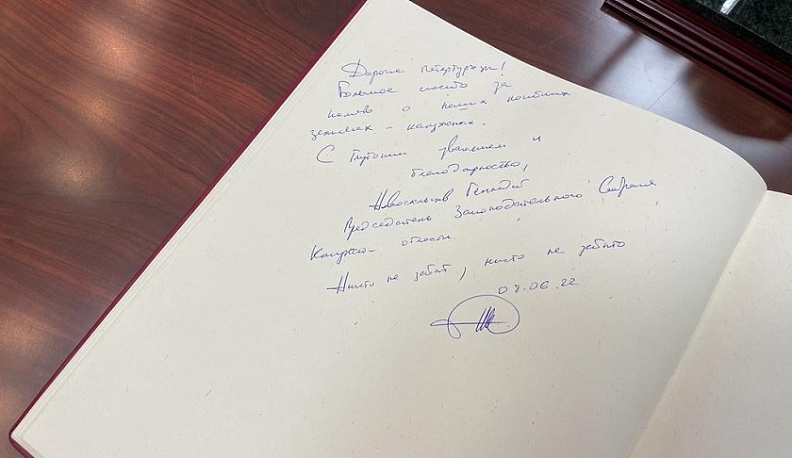 Дорогие Петербуржцы!
Большое спасибо за
память о наших погибших
земляках - калужанах.
С Глубоким уважением и
благодарностью,
Новосельцев Геннадий
Председатель Законодательного Собрания
Калужской области
Никто не забыт, ничто не забыто
08.06.22